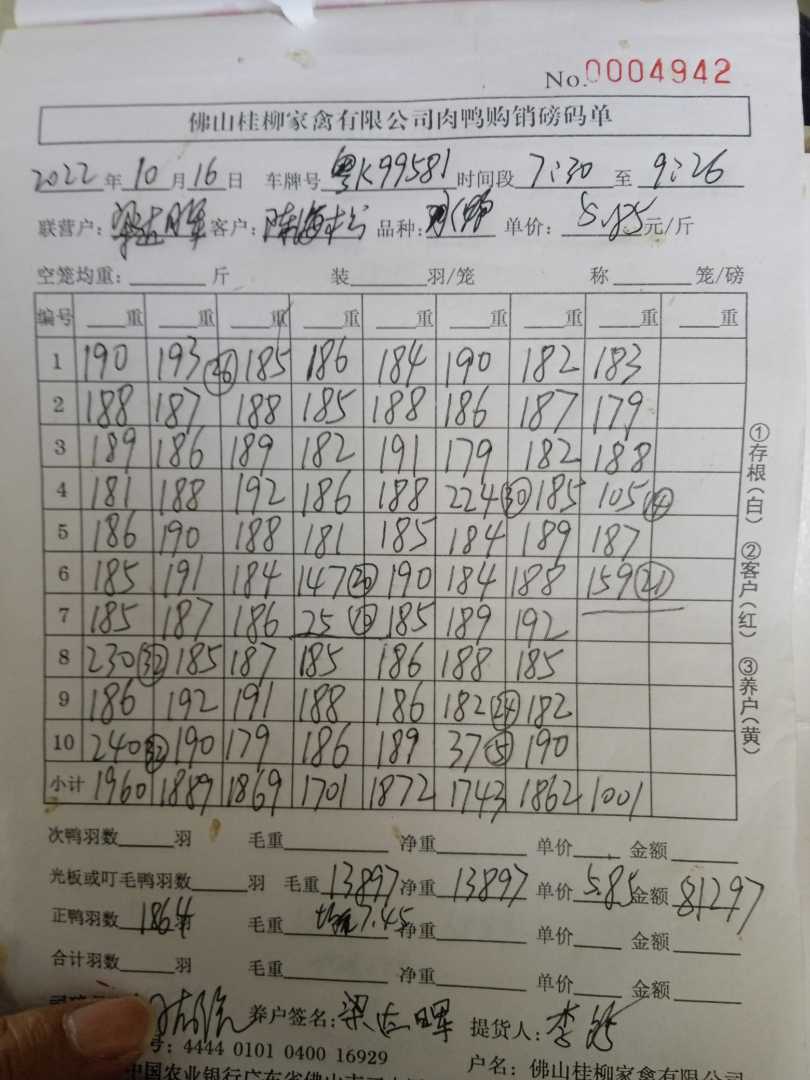 No.0004942
佛山桂柳家禽有限公司肉鸭购销磅码单
2022年10月16日 车牌号 粤K99581 时间段 7:30 至 9:26
联营户: 梁达晖 客户: 陈海松 品种: 单价: 5.85元/斤
空笼均重: 斤 装 羽/笼 称 笼/磅
编号 重 重 重 重 重 重 重 重 重
1 190 193 26 185 186 184 190 182 183
2 188 187 188 185 188 186 187 179
3 189 186 189 182 191 179 182 188
4 181 188 192 186 188 224 30 185 105 14
5 186 190 188 181 185 184 189 187
6 185 191 184 147 20 190 184 188 159 21
7 185 187 186 25 185 189 192
8 230 32 185 187 185 186 188 185
9 186 192 191 188 186 182 24 182
10 240 32 190 179 186 189 37 5 190
小计 1960 1889 1869 1701 1872 1743 1862 1001
①存根(白) ②客户(红) ③养户(黄)
次鸭羽数 羽 毛重 净重 单价 金额
光板或叮毛鸭羽数 羽 毛重 13897 净重 13897 单价 5.85 金额 81297
正鸭羽数 1864 羽 毛重 均重7.45 净重 单价 金额
合计羽数 羽 毛重 净重 单价 金额
养户签名: 梁达晖 提货人: 李
号: 4444 0101 0400 16929
户名: 佛山桂柳家禽有限公司
中国农业银行广东省佛山市